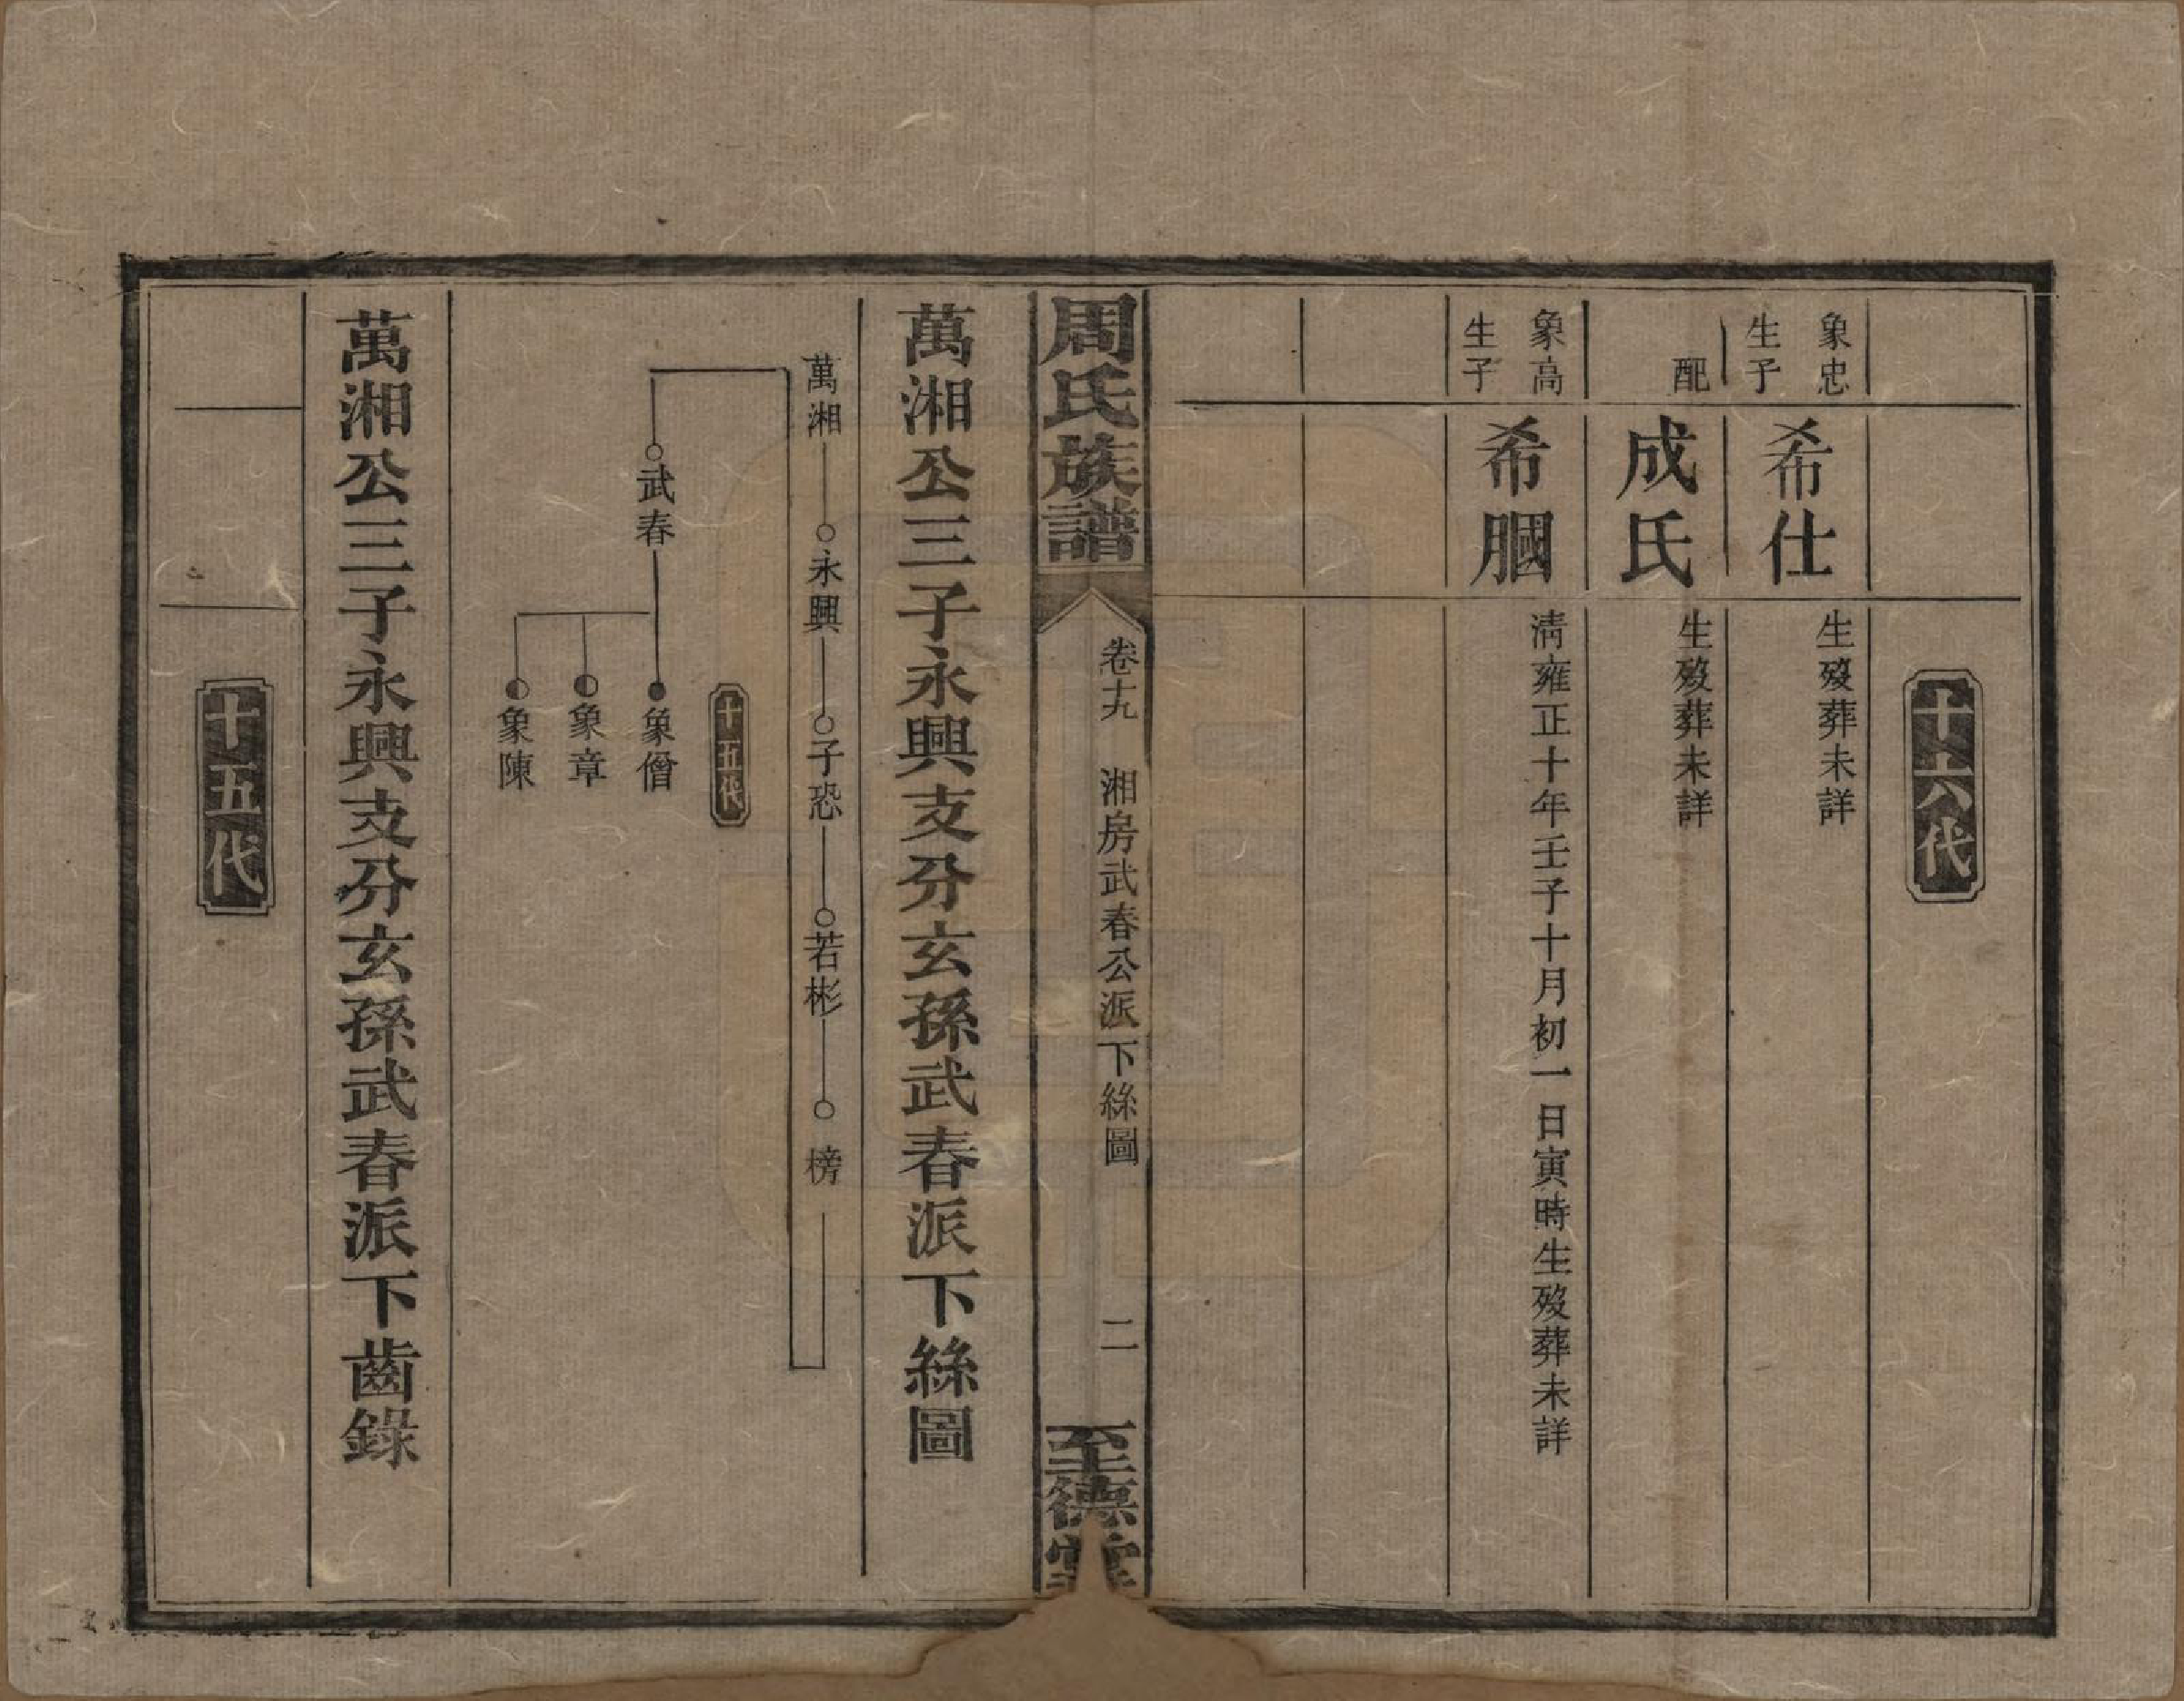 十六代
象忠
生子
希仕
生歿葬未詳
配
成氏
生歿葬未詳
象高
生子
希膕
淸雍正十年壬子十月初一日寅時生歿葬未詳
周氏族譜
卷十九 湘房武春公派下絲圖 二
至德堂
萬湘公三子永興支分玄孫武春派下絲圖
萬湘 永興 子恐 若彬 榜
十五代
武春 象僧
象章
象陳
萬湘公三子永興支分玄孫武春派下齒錄
十五代